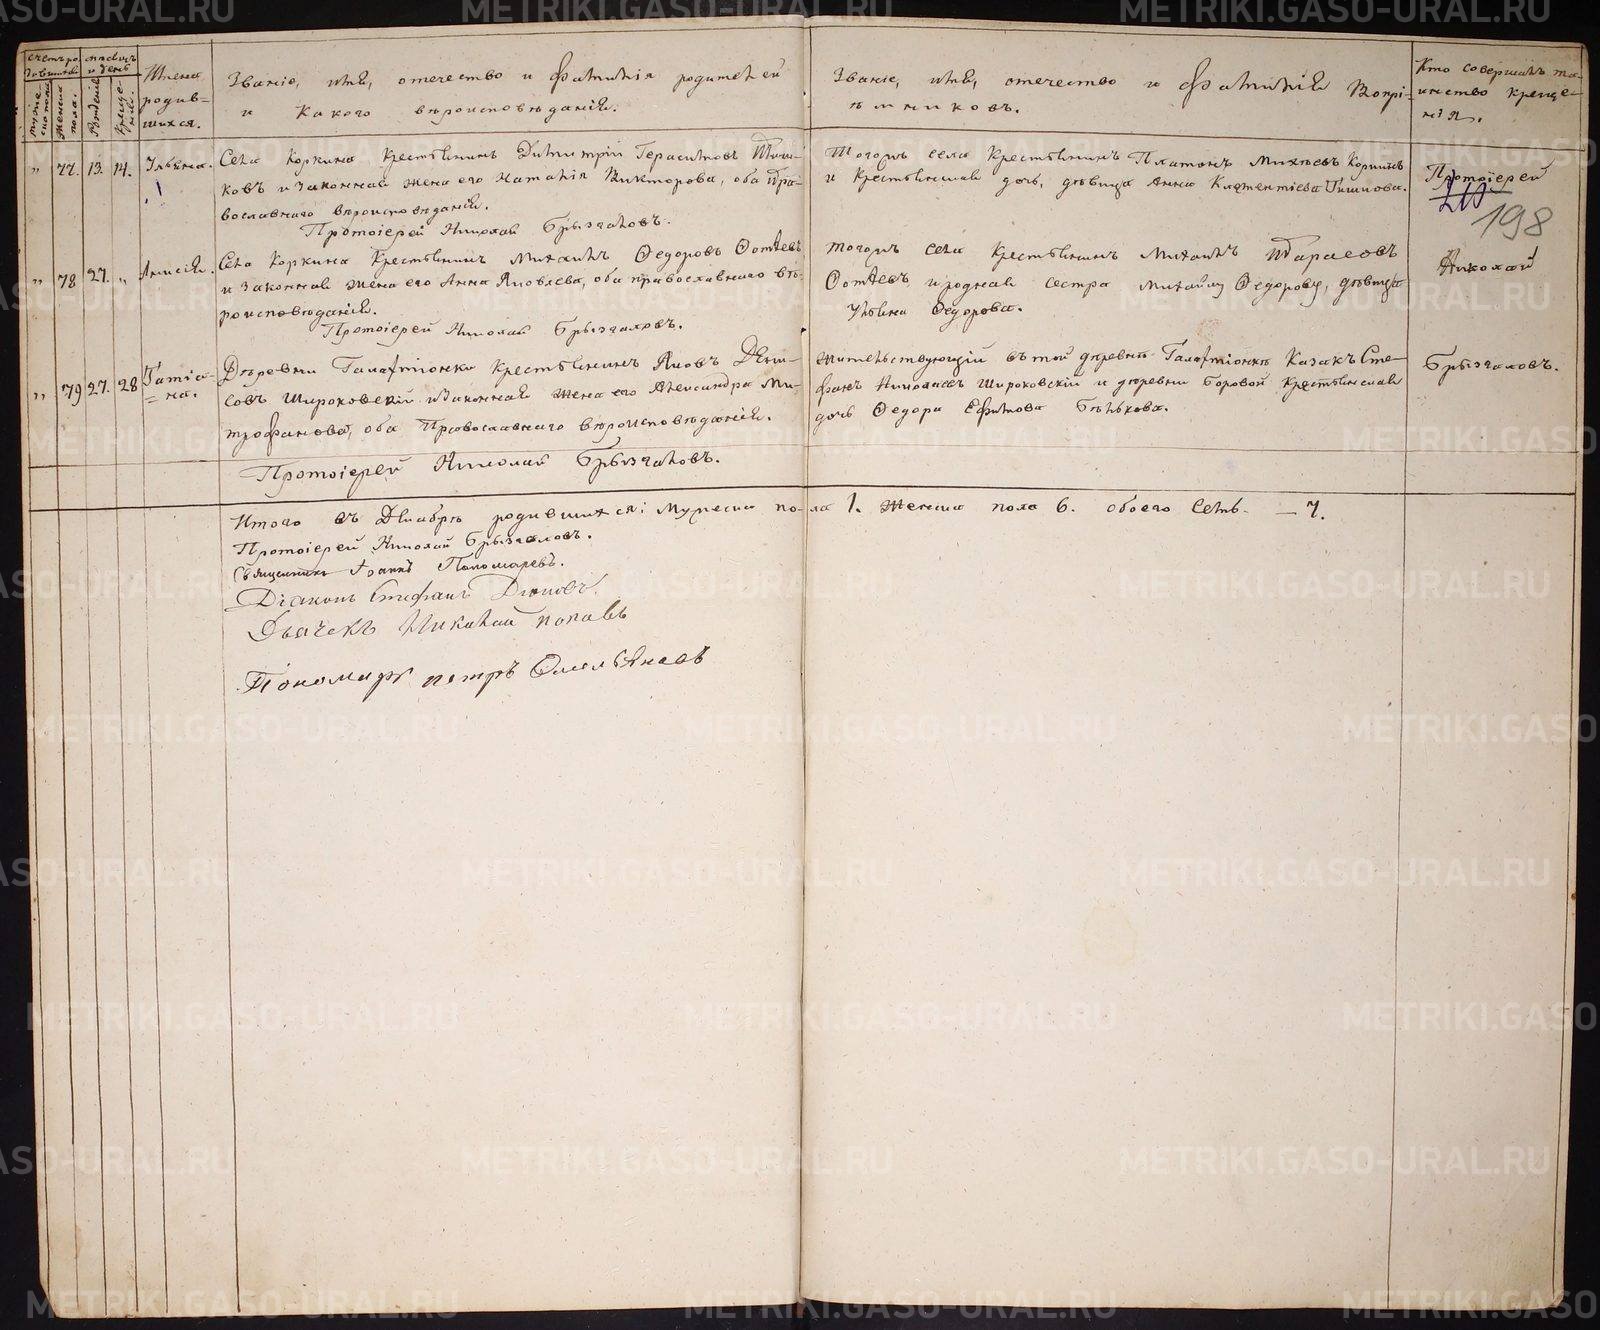 Счетъ родившихся
Мужеска пола.
Женска пола.
Мѣсяцъ и день
Рожденія
Крещенія.
Имена родившихся.
Званіе, имя, отечество и фамилія родителей
и какого вѣроисповѣданія.
Званіе, имя, отечество и фамилія воспріемниковъ.
Кто совершалъ таинство крещенія.
" 77. 13. 14. Ульяна.
Села Коркина крестьянинъ Димитрій Герасимовъ
ковъ и законная жена его Наталія Викторова, оба православнаго вѣроисповѣданія.
Протоіерей Николай Брызгаловъ.
Тогожъ села крестьянинъ Платонъ Михѣевъ Коркинъ
и крестьянская дочь, дѣвица Анна Климентіева
Протоіерей
198
" 78 27. " Анисія.
Села Коркина крестьянинъ Михаилъ Ѳедоровъ Ѳотѣевъ
и законная жена его Анна Яковлева, оба православнаго вѣроисповѣданія.
Протоіерей Николай Брызгаловъ.
Тогожъ села крестьянинъ Михаилъ Тарасовъ
Ѳотѣевъ и родная сестра Михаилу Ѳедорову, дѣвица
Ульяна Ѳедорова.
Николай
" 79 27. 28 Татіана.
Деревни Галактіонки крестьянинъ Яковъ Денисовъ Широковскій и законная жена его Александра Митрофанова, оба Православнаго вѣроисповѣданія.
Протоіерей Николай Брызгаловъ.
Жительствующій въ той деревнѣ Галактіонкѣ Казакъ Стефанъ Николаевъ Широковскій и деревни Боровой крестьянская
дочь Ѳедора Ефимова Бѣлькова.
Брызгаловъ.
Итого въ Декабрѣ родившихся: Мужеска пола 1. женска пола 6. обоего семь. — 7.
Протоіерей Николай Брызгаловъ.
Священникъ Іоаннъ Пономаревъ.
Діаконъ Стефанъ
Дьячекъ Николай попавъ
Пономарь петръ Омельянавъ
METRIKI.GASO-URAL.RU